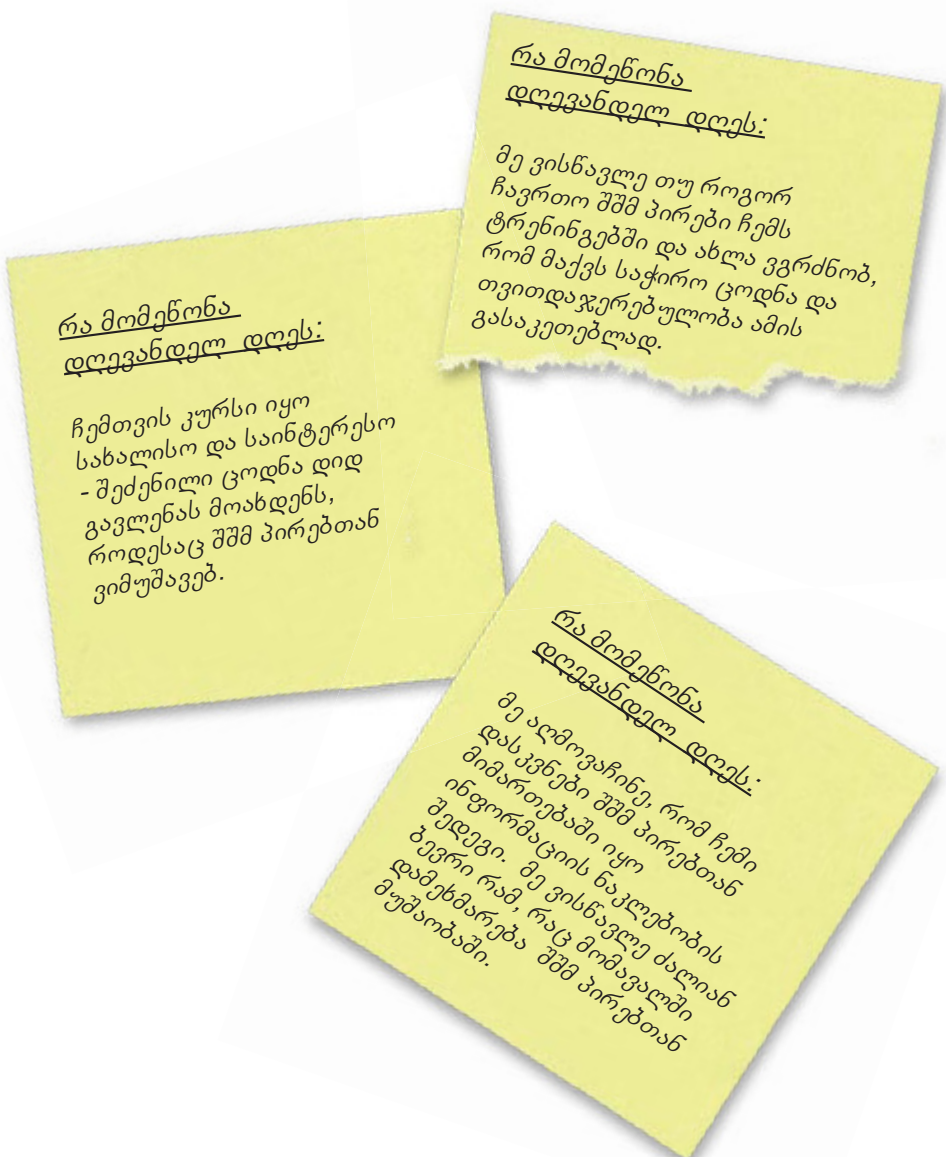 რა მომეწონა
დღევანდელ დღეს:
მე ვისწავლე თუ როგორ
ჩავრთო შშმ პირები ჩემს
ტრენინგებში და ახლა ვგრძნობ,
რომ მაქვს საჭირო ცოდნა და
თვითდაჯერებულობა ამის
გასაკეთებლად.
რა მომეწონა
დღევანდელ დღეს:
ჩემთვის კურსი იყო
სახალისო და საინტერესო
- შეძენილი ცოდნა დიდ
გავლენას მოახდენს,
როდესაც შშმ პირებთან
ვიმუშავებ.
რა მომეწონა
დღევანდელ დღეს:
მე აღმოვაჩინე, რომ ჩემი
დასკვნები შშმ პირებთან
მიმართებაში იყო
ინფორმაციის ნაკლებობის
შედეგი. მე ვისწავლე ძალიან
ბევრი რამ, რაც მომავალში
დამეხმარება შშმ პირებთან
მუშაობაში.